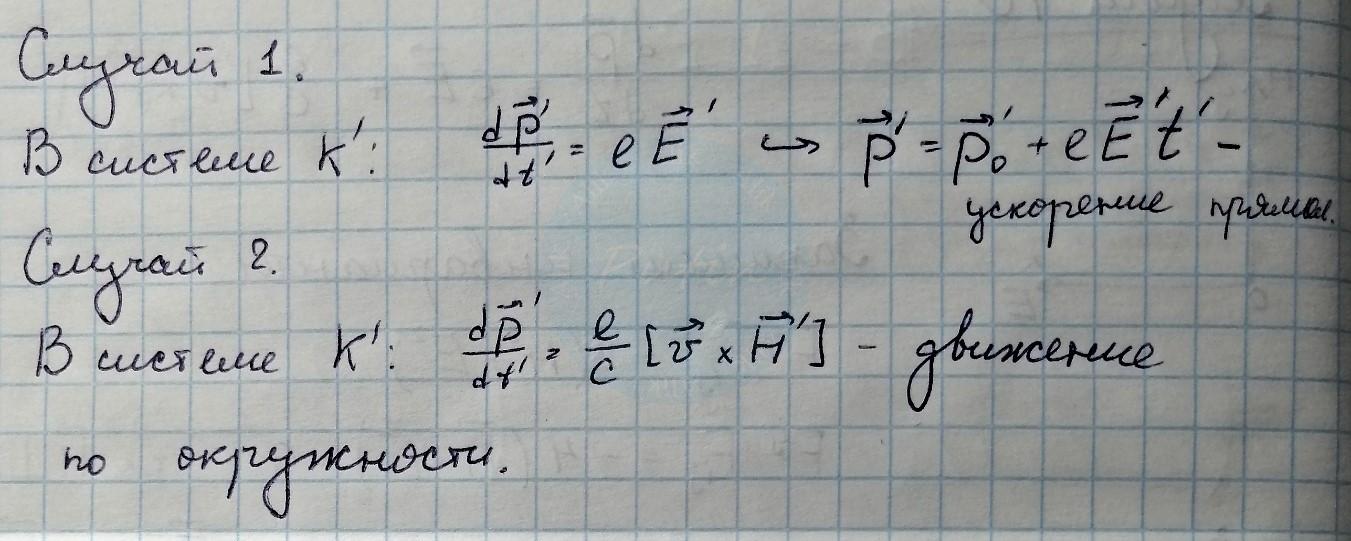 Случай 1.
В системе K': dp⃗'/dt' = eE⃗' ↪ p⃗' = p⃗₀' + eE⃗'t' –
ускорение прямол.
Случай 2.
В системе K': dp⃗'/dt' = e/c [v⃗ × H⃗'] – движение
по окружности.